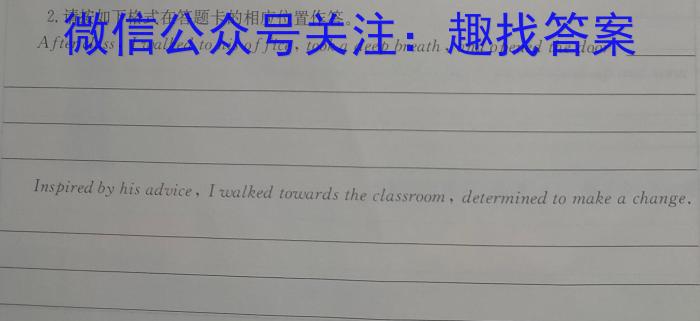 2.请按如下格式在答题卡的相应位置作答。
微信公众号关注：趣找答案
After class, I walked to his office, took a deep breath, and opened the door.
Inspired by his advice, I walked towards the classroom, determined to make a change.